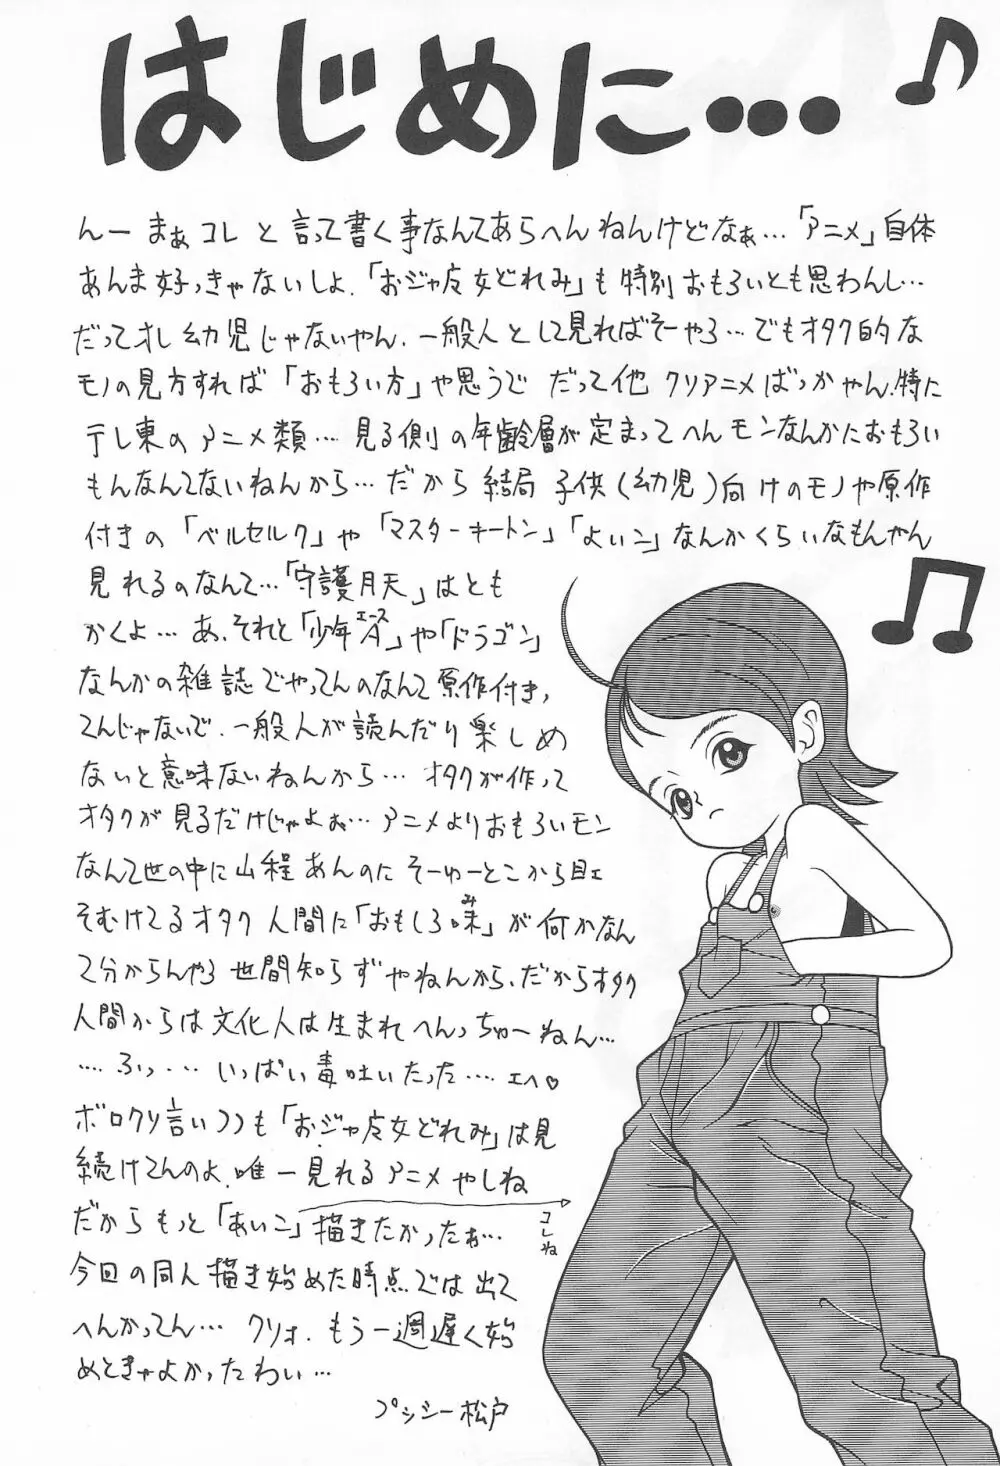 はじめに…
んー まぁ コレ と 言って書く事なんてあらへんねんけどなぁ…「アニメ」自体
あんま好っきゃないしよ.「おジャ魔女どれみ」も 特別 おもろいとも思わんし…
だってオレ 幼児じゃないやん. 一般人として見ればそーやろ…でもオタク的な
モノの見方すれば「おもろい方」や思うで だって他 クソアニメばっかやん.特に
テレ東のアニメ類…見る側の年齢層が定まってへんモンなんかにおもろい
もんなんてないねんから…だから 結局 子供(幼児)向けのモノや原作
付きの「ベルセルク」や「マスターキートン」「よいこ」なんかくらいなもんやん
見れるのなんて…「守護月天」はとも
かくよ…あ、それと「少年エース」や「ドラゴン」
なんかの雑誌でやってんのなんて原作付き,
てんじゃないで.一般人が読んだり楽しめ
ないと意味ないねんから…オタクが作って
オタクが見るだけじゃよぉ…アニメよりおもろいモン
なんて世の中に山程あんのに そーゆーとこから目ェ
そむけてるオタク人間に「おもしろ味」が何かなん
て分からんやろ 世間知らずやねんから、だからオタク
人間からは文化人は生まれへんっちゅーねん…
……ふっ…いっぱい毒吐いたった……エヘ♡
ボロクソ言いつつも「おジャ魔女どれみ」は見
続けてんのよ.唯一見れるアニメやしね
コレね
だからもっと「あいこ」描きたかったぉ…
今回の同人描き始めた時点では出て
へんかってん…クソォ.もう一週遅く始
めときゃよかったわい…
プシシー松戸